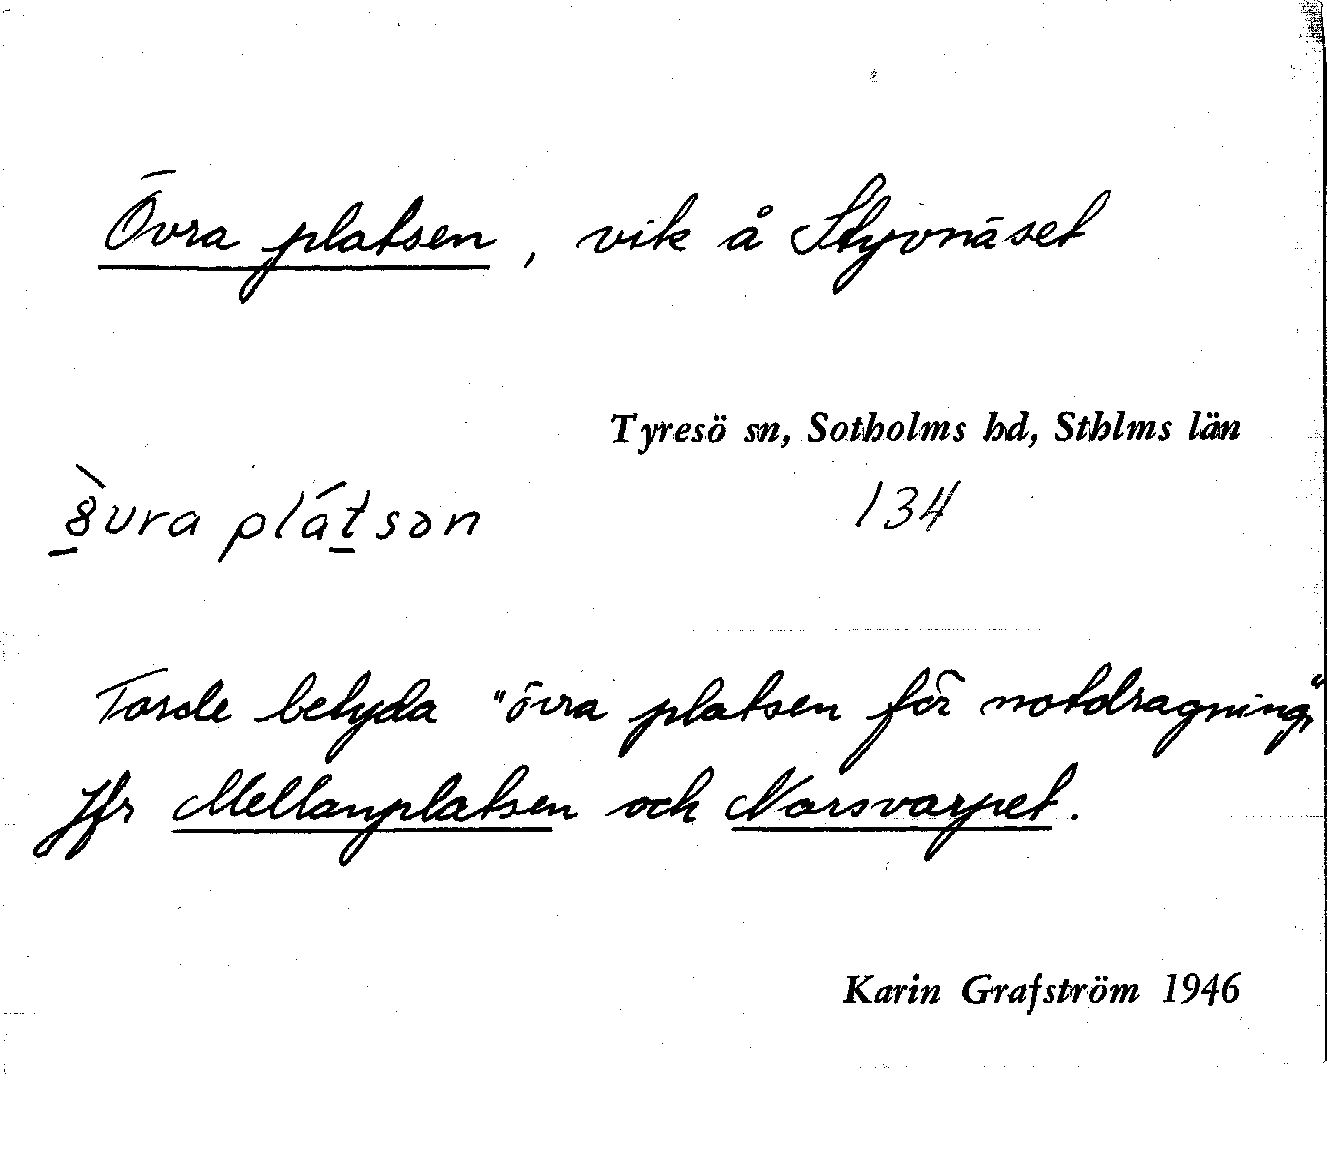 Övra platsen, vik å Styvnäset
Tyresö sn, Sotholms hd, Sthlms län
134
Torde betyda "övra platsen för notdragning",
Jfr Mellanplatsen och Norsvarpet.
Karin Grafström 1946